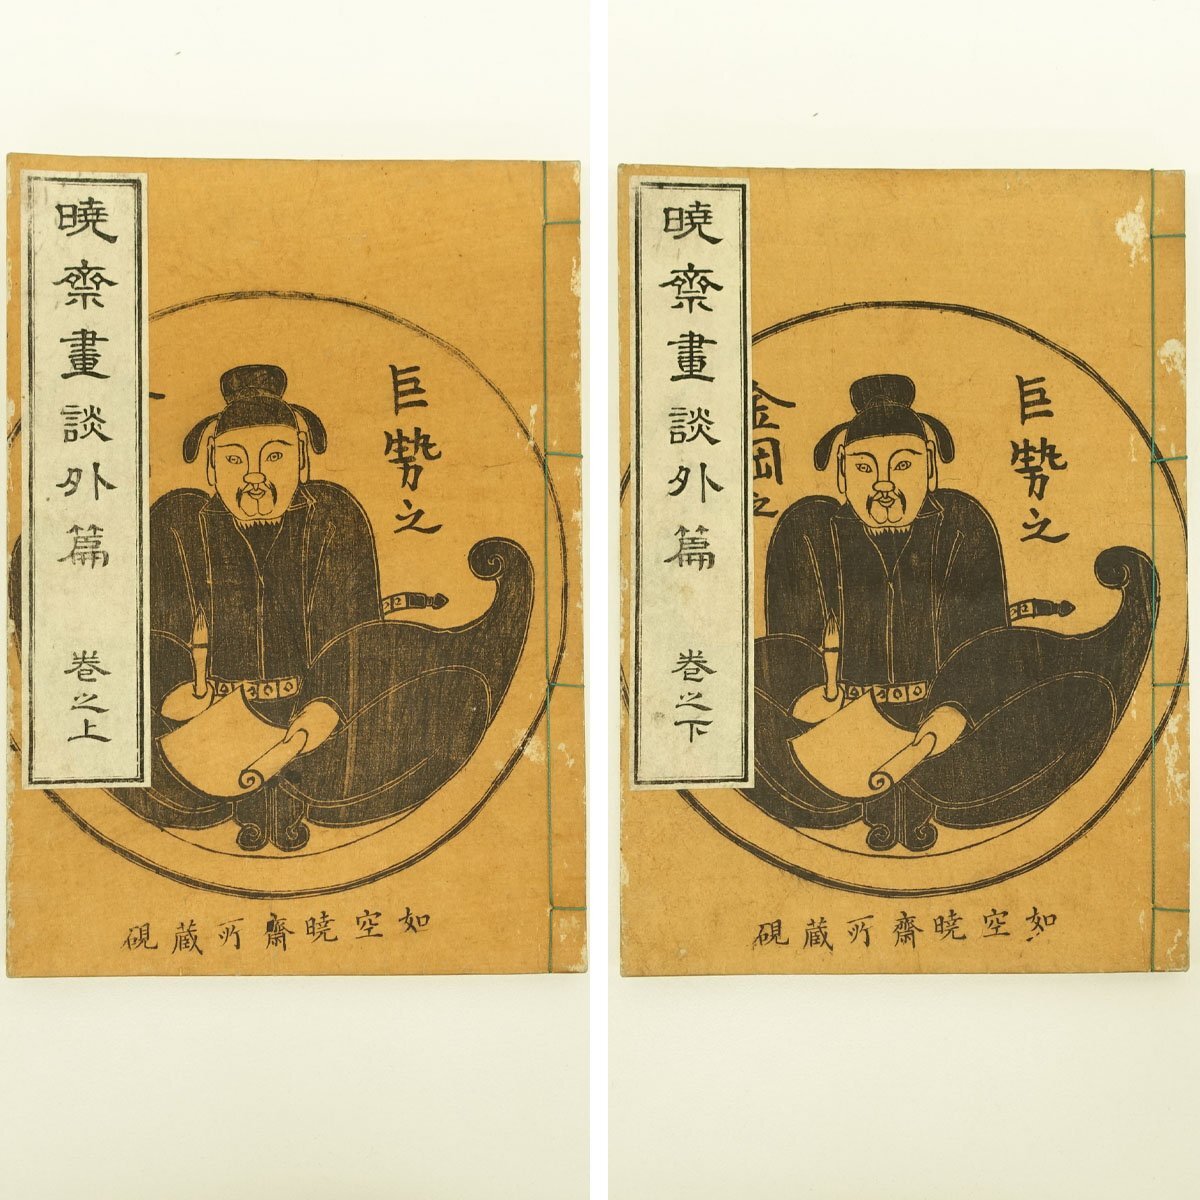 暁齋畫談外篇 巻之上
巨勢之
如空暁齋所蔵硯
暁齋畫談外篇 巻之下
巨勢之
金岡之
如空暁齋所蔵硯